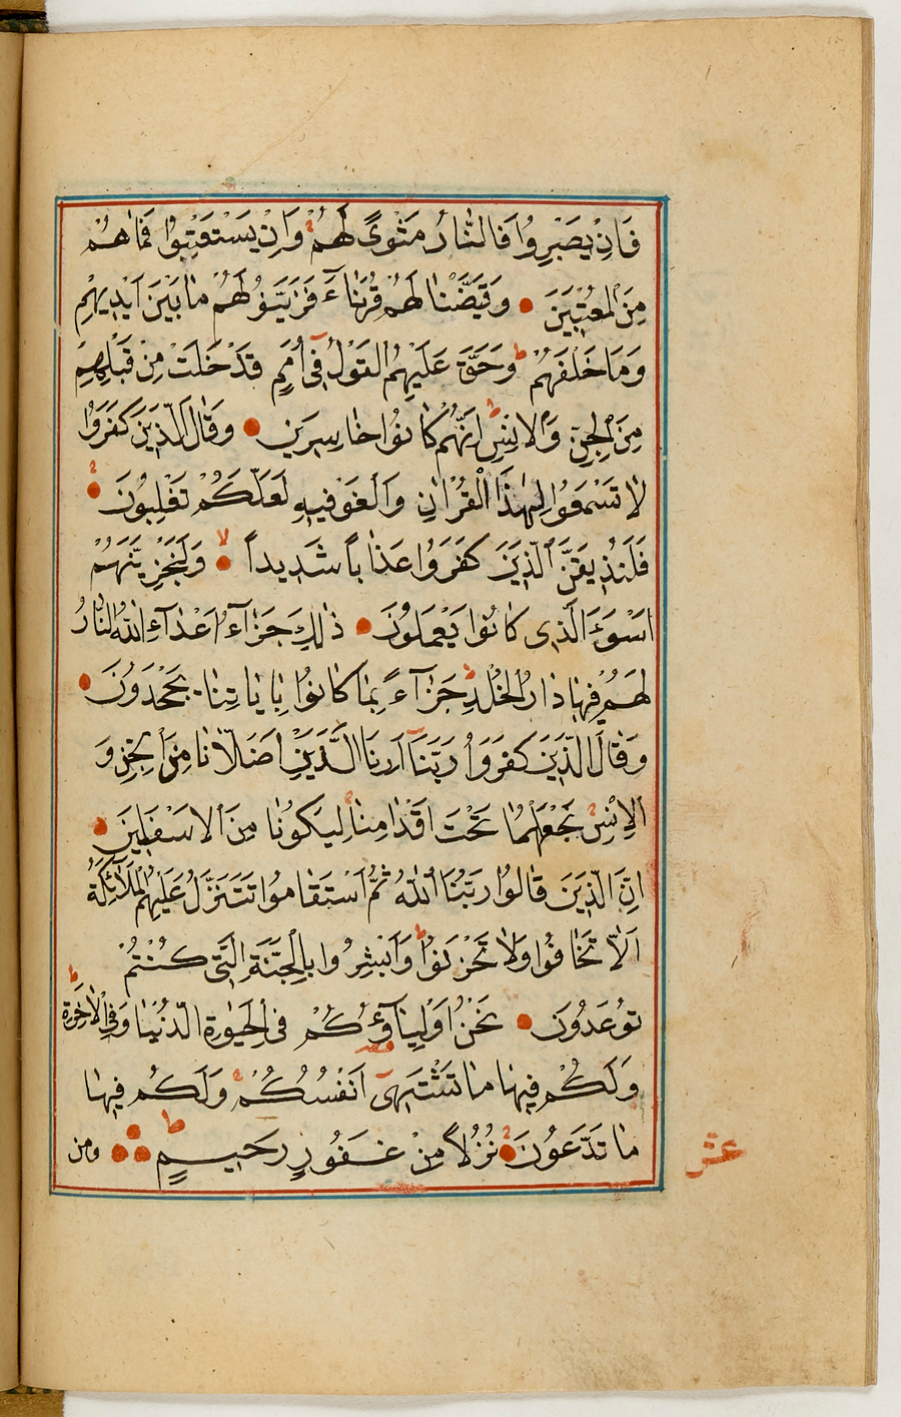 فَاِنْ يَصْبِرُوا فَالنَّارُ مَثْوًى لَهُمْ وَاِنْ يَسْتَعْتِبُوا فَمَا هُمْ
مِنَ الْمُعْتَبِينَ وَقَيَّضْنَا لَهُمْ قُرَنَاءَ فَزَيَّنُوا لَهُمْ مَا بَيْنَ اَيْدِيهِمْ
وَمَا خَلْفَهُمْ وَحَقَّ عَلَيْهِمُ الْقَوْلُ فِى اُمَمٍ قَدْ خَلَتْ مِنْ قَبْلِهِمْ
مِنَ الْجِنِّ وَالْاِنْسِ اِنَّهُمْ كَانُوا خَاسِرِينَ وَقَالَ الَّذِينَ كَفَرُوا
لَا تَسْمَعُوا لِهٰذَا الْقُرْاٰنِ وَالْغَوْا فِيهِ لَعَلَّكُمْ تَغْلِبُونَ
فَلَنُذِيقَنَّ الَّذِينَ كَفَرُوا عَذَابًا شَدِيدًا وَلَنَجْزِيَنَّهُمْ
اَسْوَءَ الَّذِى كَانُوا يَعْمَلُونَ ذٰلِكَ جَزَاءُ اَعْدَاءِ اللّٰهِ النَّارُ
لَهُمْ فِيهَا دَارُ الْخُلْدِ جَزَاءً بِمَا كَانُوا بِاٰيَاتِنَا يَجْحَدُونَ
وَقَالَ الَّذِينَ كَفَرُوا رَبَّنَا اَرِنَا الَّذَيْنِ اَضَلَّانَا مِنَ الْجِنِّ وَ
الْاِنْسِ نَجْعَلْهُمَا تَحْتَ اَقْدَامِنَا لِيَكُونَا مِنَ الْاَسْفَلِينَ
اِنَّ الَّذِينَ قَالُوا رَبُّنَا اللّٰهُ ثُمَّ اسْتَقَامُوا تَتَنَزَّلُ عَلَيْهِمُ الْمَلٰئِكَةُ
اَلَّا تَخَافُوا وَلَا تَحْزَنُوا وَاَبْشِرُوا بِالْجَنَّةِ الَّتِى كُنْتُمْ
تُوعَدُونَ نَحْنُ اَوْلِيَاؤُكُمْ فِى الْحَيٰوةِ الدُّنْيَا وَفِى الْاٰخِرَةِ
وَلَكُمْ فِيهَا مَا تَشْتَهِى اَنْفُسُكُمْ وَلَكُمْ فِيهَا
مَا تَدَّعُونَ نُزُلًا مِنْ غَفُورٍ رَحِيمٍ ومن
عشر